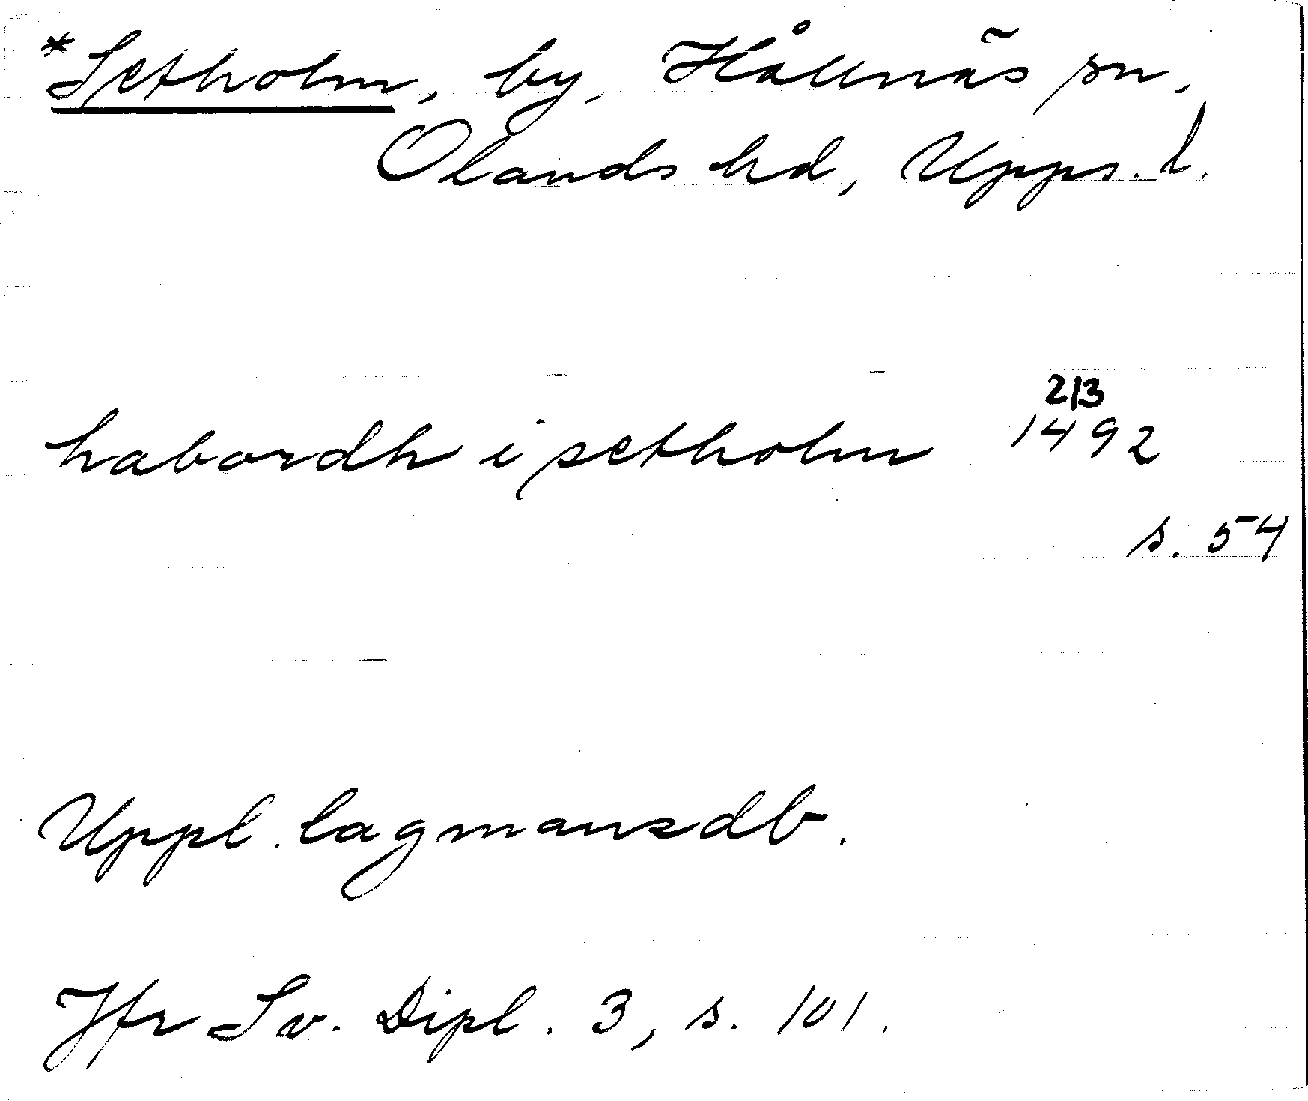 *Setholm, by, Hållnäs sn,
Olands hd, Upps. l.
habordh i setholm 2/3 1492
s. 54
Uppl. lagmansdb.
Jfr Sv. Dipl. 3, s. 101.